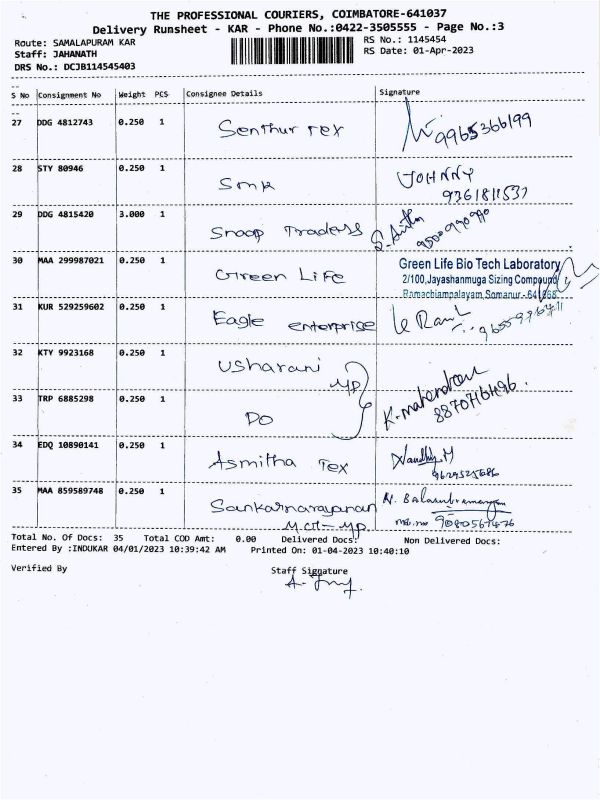 THE PROFESSIONAL COURIERS, COIMBATORE-641037
Delivery Runsheet - KAR - Phone No.:0422-3505555 - Page No.:3
Route: SAMALAPURAM KAR RS No.: 1145454
Staff: JAHANATH RS Date: 01-Apr-2023
DRS No.: DCJB114545403
S No Consignment No Weight PCS Consignee Details Signature
27 DDG 4812743 0.250 1 Senthur Tex 9965366199
28 STY 80946 0.250 1 Smk JOHNNY
9361811537
29 DDG 4815420 3.000 1 Snoop Traders
30 MAA 299987021 0.250 1 Green Life Green Life Bio Tech Laboratory
2/100,Jayashanmuga Sizing Compound
Ramachiampalayam, Somanur - 641668
31 KUR 529259602 0.250 1 Eagle enterprise
32 KTY 9923168 0.250 1 Usharani
MP
33 TRP 6885298 0.250 1 DO K. mahendran
8870716496.
34 EDQ 10890141 0.250 1 Asmitha Tex Nandhy.M
9629525686
35 MAA 859589748 0.250 1 Sankarnarayanan N. Balasubramanyan
M.CT - MP mb.no 9080567476
Total No. Of Docs: 35 Total COD Amt: 0.00 Delivered Docs: Non Delivered Docs:
Entered By :INDUKAR 04/01/2023 10:39:42 AM Printed On: 01-04-2023 10:40:10
Verified By Staff Signature